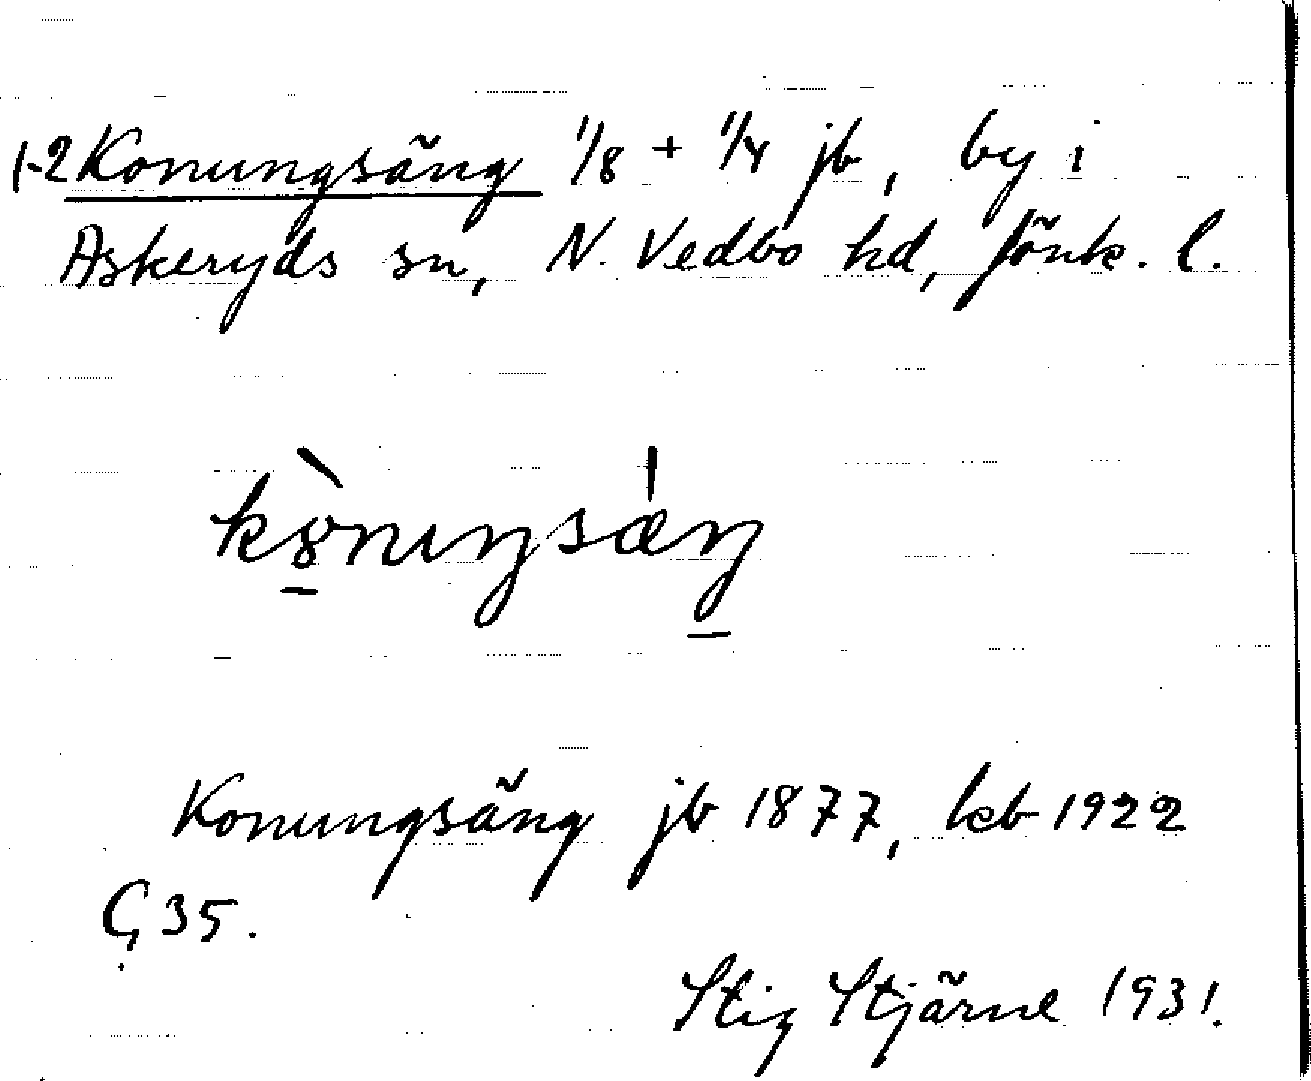 1-2 Konungsäng 1/8 + 1/4 jb, by i
Askeryds sn, N. Vedbo hd, Jönk. l.
kò̠nıŋsǽŋ̠
Konungsäng jb 1877, kb 1922
Ç 35.
Stig Stjärne 1931.